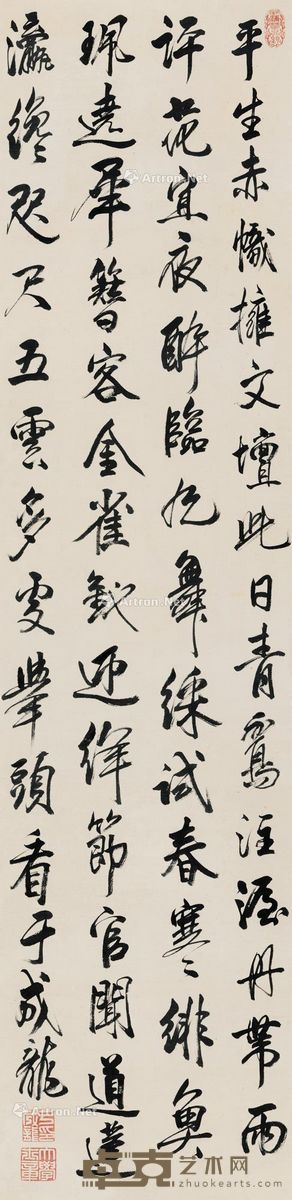 平生赤幟擁文壇此日青鸞注渥丹帶雨
評花宜夜醉臨風舞綵試春寒緋魚
珮遶犀簪客金雀釵迎絳節官聞道蓬
瀛纔咫尺五雲多處舉頭看于成龍
Artron.Net
卓克艺术网
www.zhuokearts.com